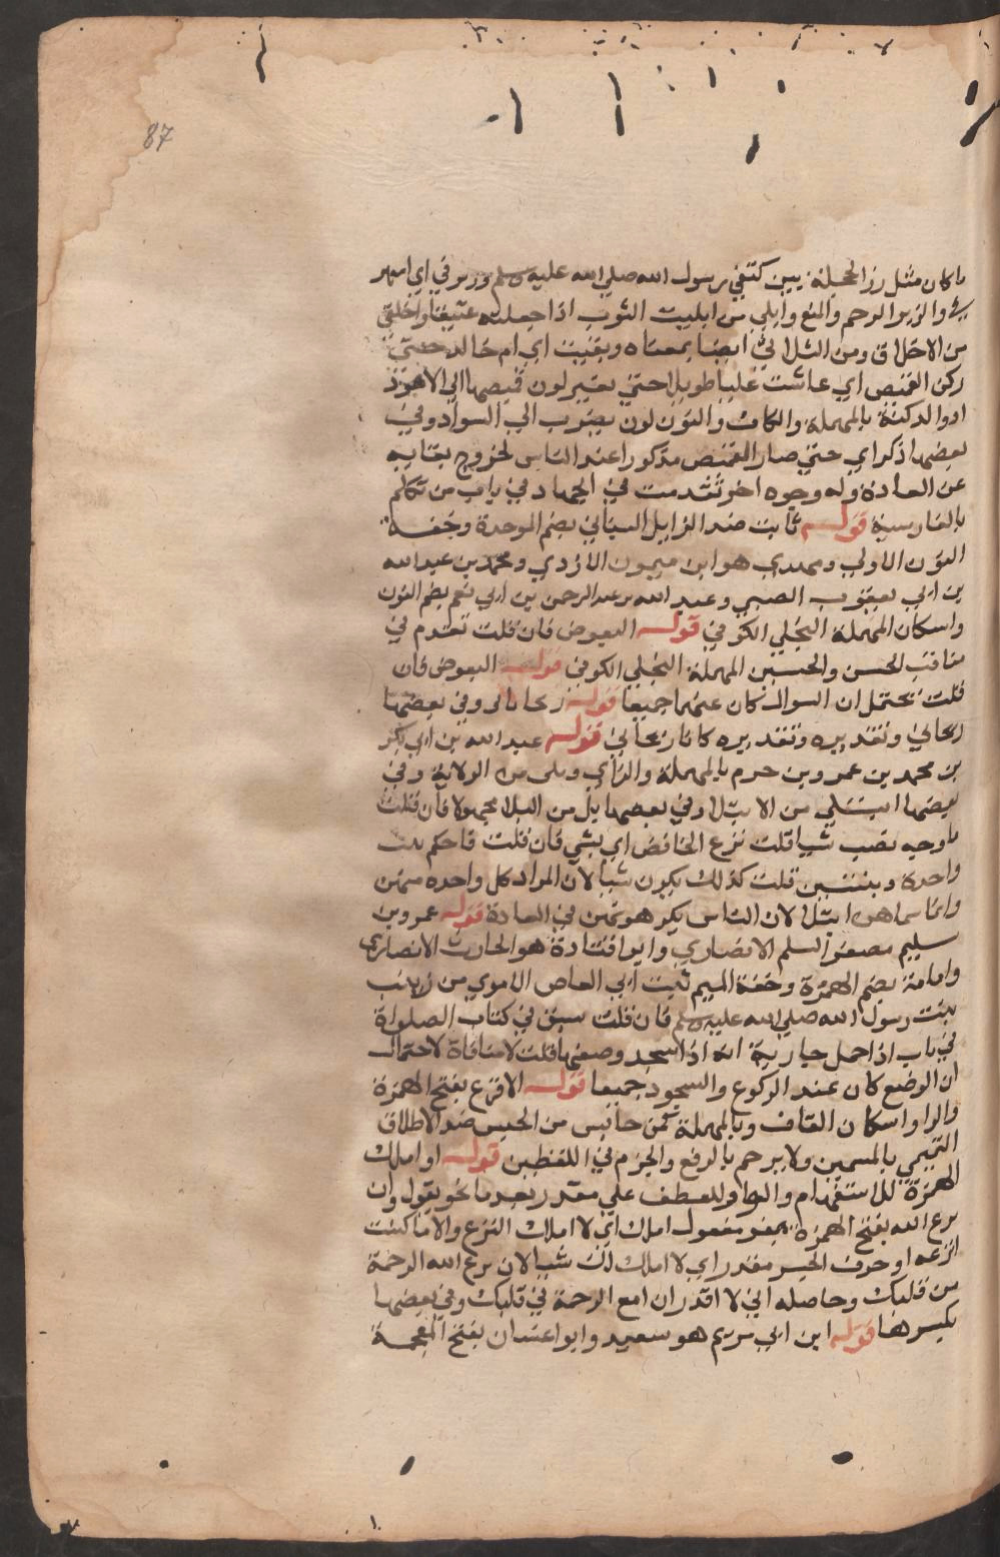 87
ما كان مثل زر الحجلة بين كتفي رسول الله صلي الله عليه وسلم وزبرني اي انتهر
ني والزبر الزجر والمنع وابلي من ابليت الثوب اذا جعلته عتيقا واخلقي
من الاخلاق ومن الثلاثي ايضا بمعناه وبقيت اي ام خالد حتي
دكن القميص اي عاشت عليا طويلا حتي تغير لون قميصها الي الاسود
اد والدكنة بالمهملة والكاف والنون لون يضرب الي السواد وفي
بعضها ذكر اي حتي صار القميص مذكورا عند الناس لخروج بقايه
عن العادة وله وجوه اخر تقدمت في الجهاد في باب من تكلم
بالفارسية قوله ثابت ضد الزايل البناني بضم الموحدة وخفة
النون الاولي ومهدي هو ابن ميمون الازدي ومحمد بن عبد الله
بن ابي يعقوب الضبي وعبد الله بن عبد الرحمن بن ابي نعم بضم النون
واسكان المهملة البجلي الكوفي قوله البعوض فان قلت تقدم في
مناقب الحسن والحسين المهملة البجلي الكوفي قوله البعوض فان
قلت يحتمل ان السوال كان عنهما جميعا قوله ريحانا وفي بعضها
ريحاني وتقديره وتقديره كانا ريحاني قوله عبد الله بن ابي بكر
بن محمد بن عمرو بن حزم بالمهملة والزاي ويلي من الولاية وفي
بعضها ابتلي من الابتلا وفي بعضها بلي من البلا مجهولا فان قلت
ما وجه نصب شيا قلت نزع الخافض اي بشي فان قلت فما حكم بنت
واحدة وبنتين قلت كذلك يكون شيا لان المراد كل واحده منهن
وانما سماهن ابتلا لان الناس يكرهونهن في العادة قوله عمرو بن
سليم مصغر السلم الانصاري وابو قتادة هو الحارث الانصاري
وامامة بضم الهمزة وخفة الميم بنت ابي العاص الاموي من زينب
بنت رسول الله صلي الله عليه وسلم فان قلت سبق في كتاب الصلواة
في باب اذا حمل جارية انه اذا سجد وضعها قلت لا منافاة لاحتمال
ان الوضع كان عند الركوع والسجود جميعا قوله الاقرع بفتح الهمزة
والرا واسكان القاف وبالمهملة ثمن حابس من الحبس ضد الاطلاق
التميمي بالميمين ولا يرحم بالرفع والجزم في اللفظين قوله او املك
الهمزة للاستفهام والواو للعطف علي مقدر بعدها نحو يقول وان
نزع الله بفتح الهمزة مفعول املك اي لا املك النزع والا ما كنت
انزعه او حرف الجر مقدر اي لا املك لك شيا لان نزع الله الرحمة
من قلبك وحاصله اني لا اقدر ان اضع الرحمة في قلبك وفي بعضها
بكسرها قوله ابن ابي مريم هو سعيد وابو غسان بفتح المعجمة